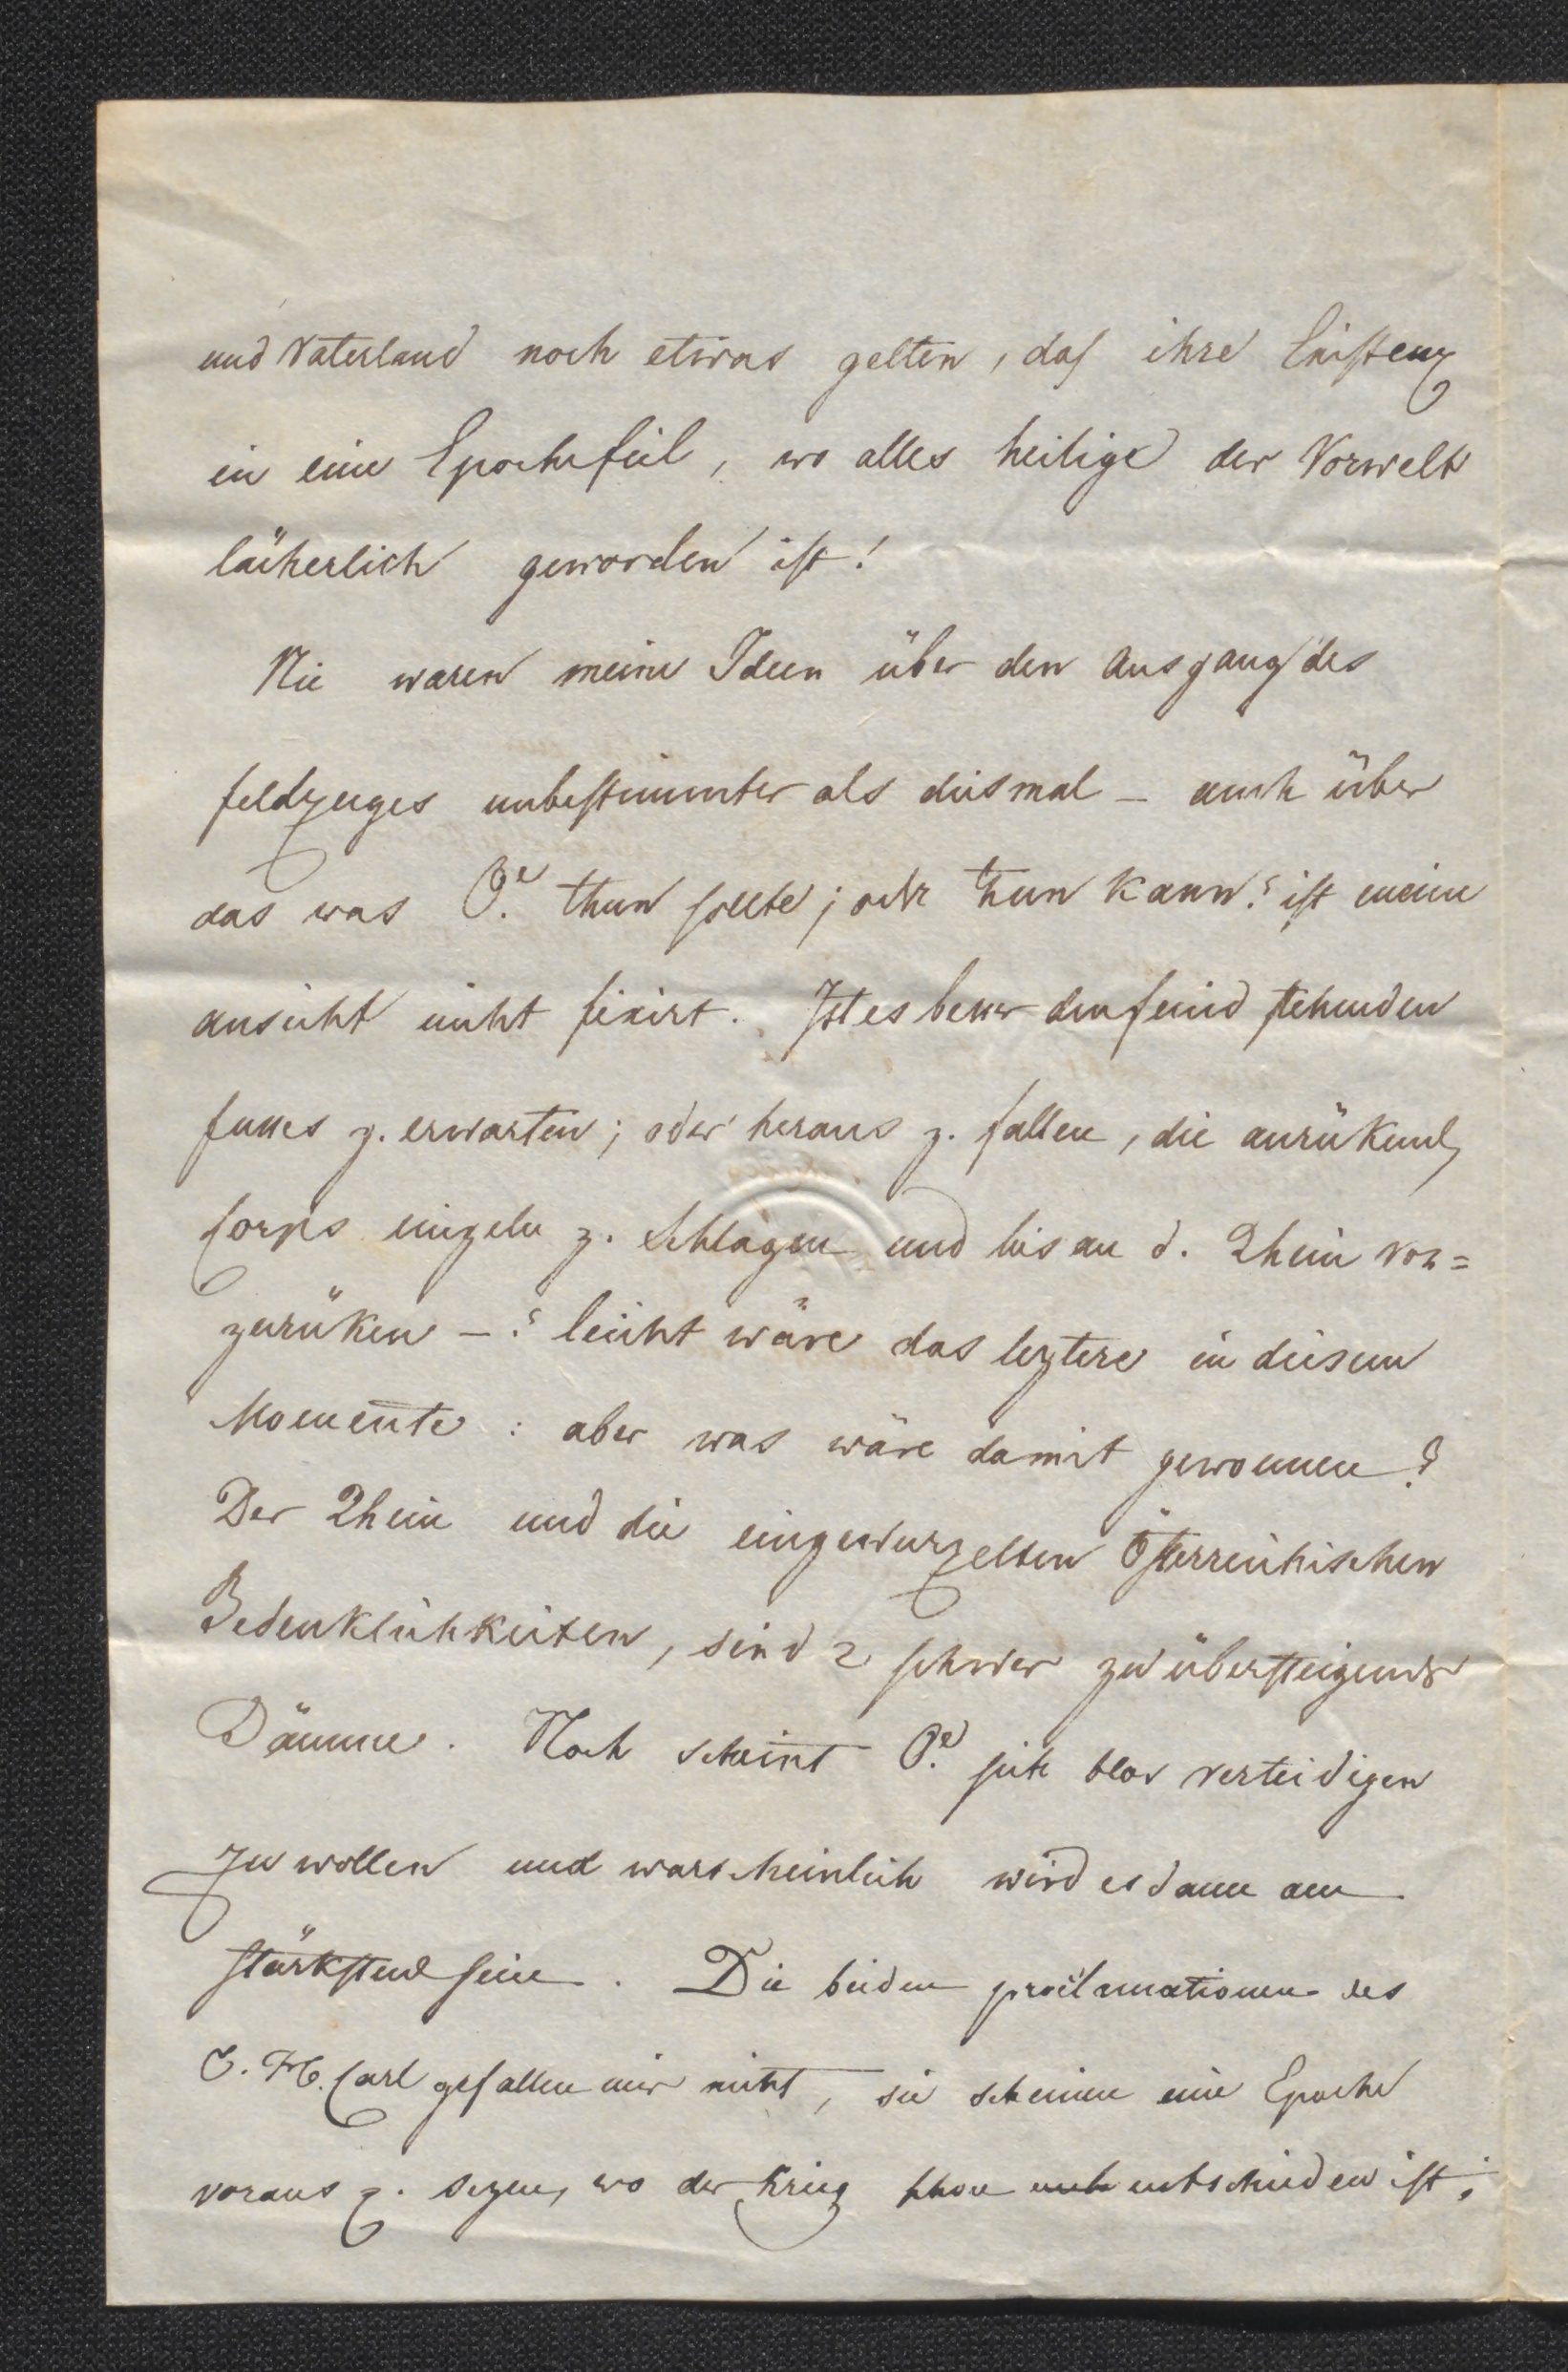 und Vaterland noch etwas gelten, daß ihre Existenz
in eine Epoche fiel, wo alles heilige der Vorwelt
lächerlich geworden ist!
Nie waren meine Ideen über den Ausgang des
Feldzuges unbestimmter als diesmal – auch über
das was Oe. thun sollte; oder thun kann? ist meine
Ansicht nicht fixirt. Ist es besser den Feind stehenden
Fusses z. erwarten; oder heraus z. fallen, die anrükend.
Corps einzeln z. Schlagen und bis an d. Rhein vor=
zurüken –? leicht wäre das leztere in diesem
Momente: aber was wäre damit gewonnen?
Der Rhein und die eingewurzelten Österreichischen
Bedenklichkeiten, sind 2 schwer zu übersteigende
Dämme. Noch scheint Oe. sich blos verteidigen
zu wollen und warscheinlich wird es dann am
stärksten sein. Die beiden proclamationen des
E. H. Carl gefallen mir nicht, sie scheinen eine Epoche
voraus z. sezen, wo der Krieg schon entschieden ist;